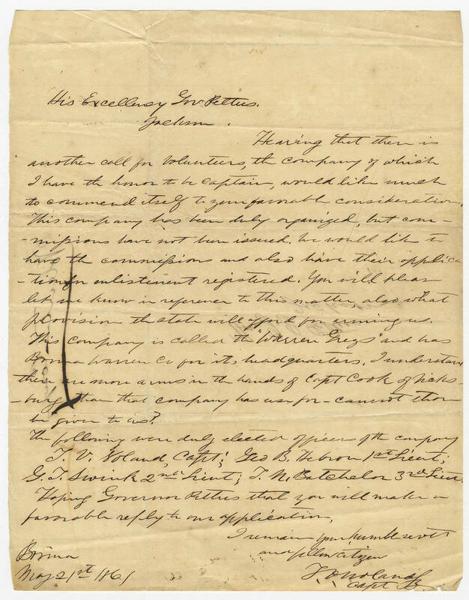 His Excellency Gov Pettus.
Jackson.
Hearing that there is
another call for Volunteers, the company of which
I have the honor to be Captain, would like much
to commend itself to your favorable consideration.
This company has been duly organized, but com-
-missions have not been issued. We would like to
have the commission and also have their applica
-tion for enlistment registered. You will please
let me know in reference to this matter, also what
provision the state will afford for arming us.
This company is called the "Warren Greys" and has
Bovina Warren Co for its headquarters. I understand
there are more arms in the hands of Capt Cook of Vicks-
burg than that company has use for - cannot they
be given to us?
The following were duly elected officers of the company
T. V. Noland, Capt; Geo B. Hebron 1st Lieut;
G. T. Swink 2nd Lieut; T. N. Batchelor 3rd Lieut.
Hoping Governor Pettus that you will make a
favorable reply to our application,
I remain your humble servt
and fellow citizen
T V Noland
Capt
Bovina
May 21st 1861